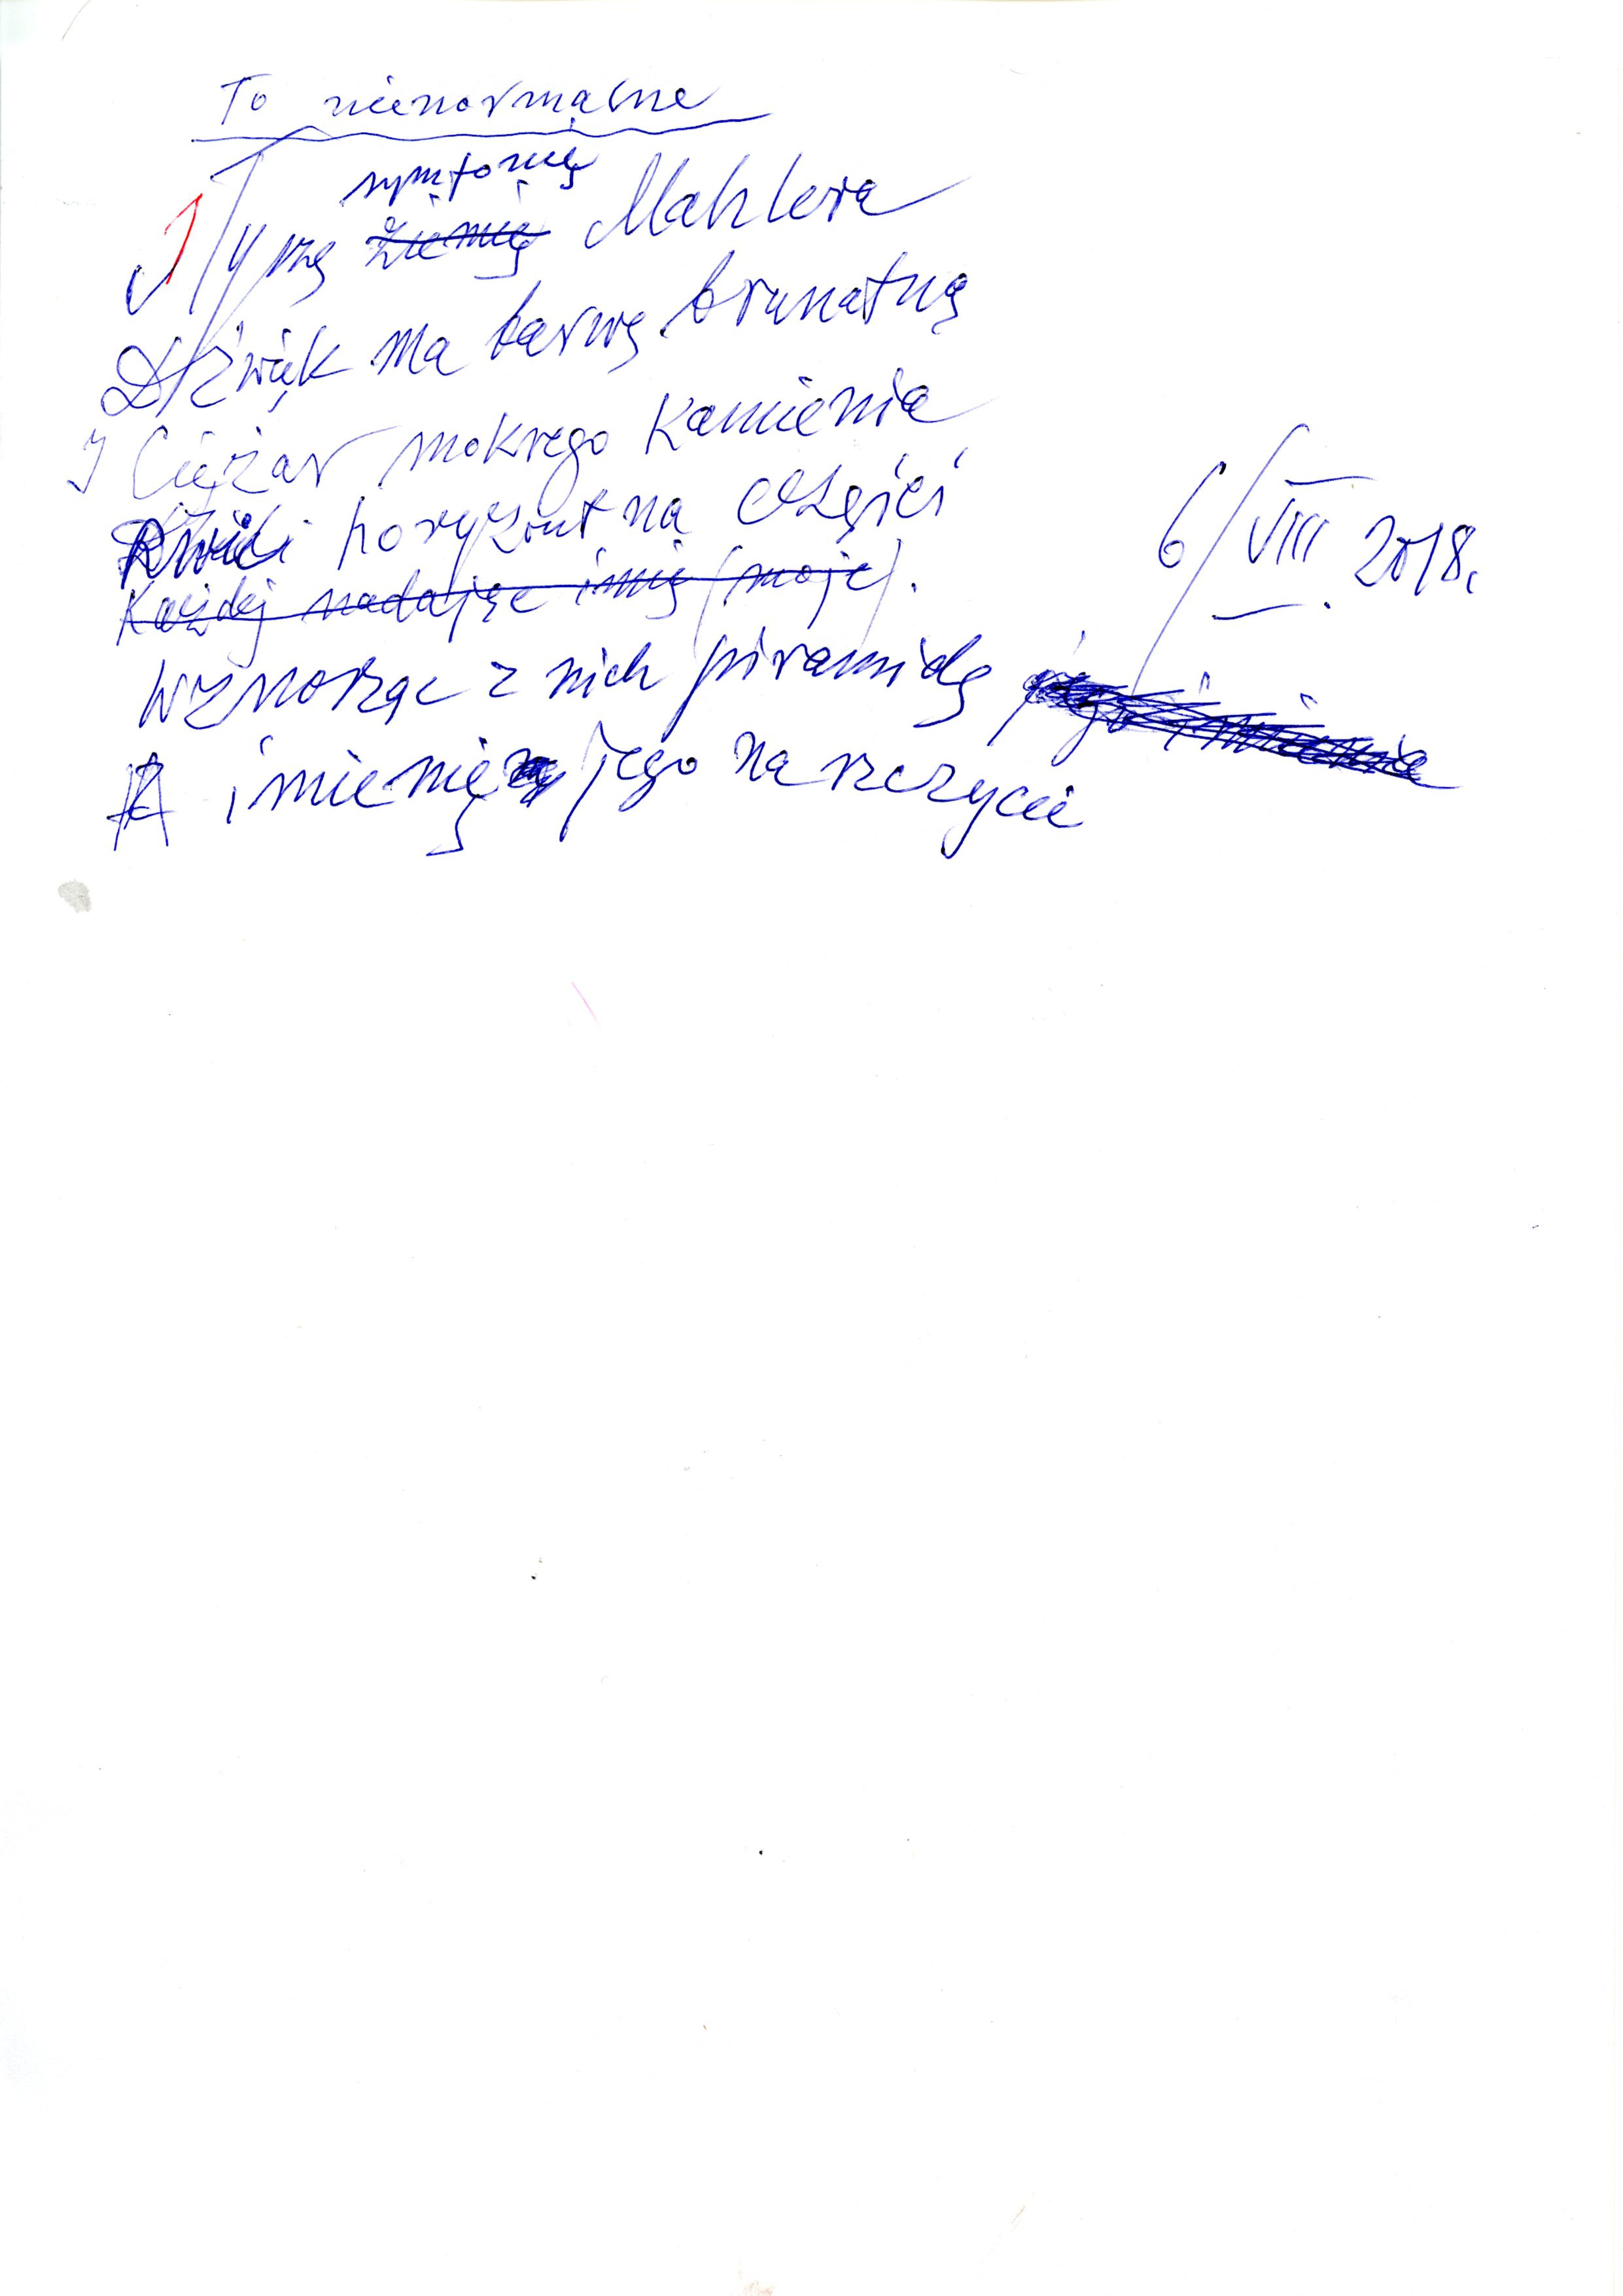 To nienormalne
symfonię
Słyszę ziemię Mahlera
Dźwięk ma barwę brunatną
I Ciężar mokrego kamienia
horyzont na części
Każdej nadając imię (moje).
6/VIII 2018.
Wznosząc z nich piramidę jego imienia
A imienię jego na szczycie